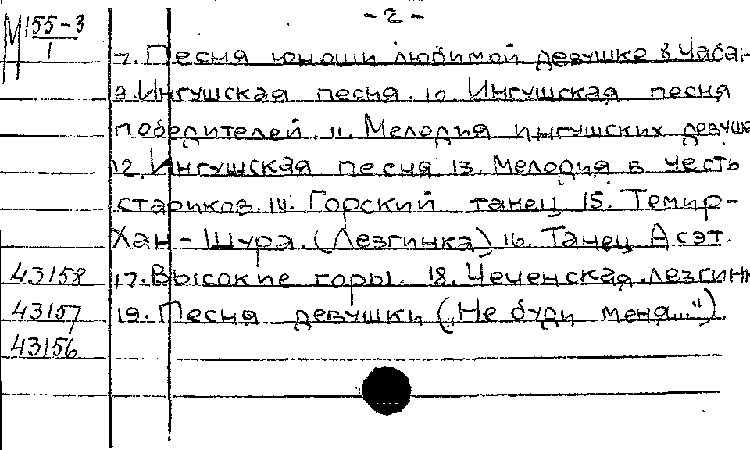 М 155-3
1
- 2 -
7. Песня юноши любимой девушке в Чаба-
9. Ингушская песня. 10. Ингушская песня
победителей. 11. Мелодия ингушских девуше
12. Ингушская песня 13. Мелодия в честь
стариков. 14. Горский танец 15. Темир-
Хан-Шура. (Лезгинка) 16. Танец Асэт.
43158 17. Высокие горы. 18. Чеченская лезгин
43157 19. Песня девушки („Не буди меня...").
43156